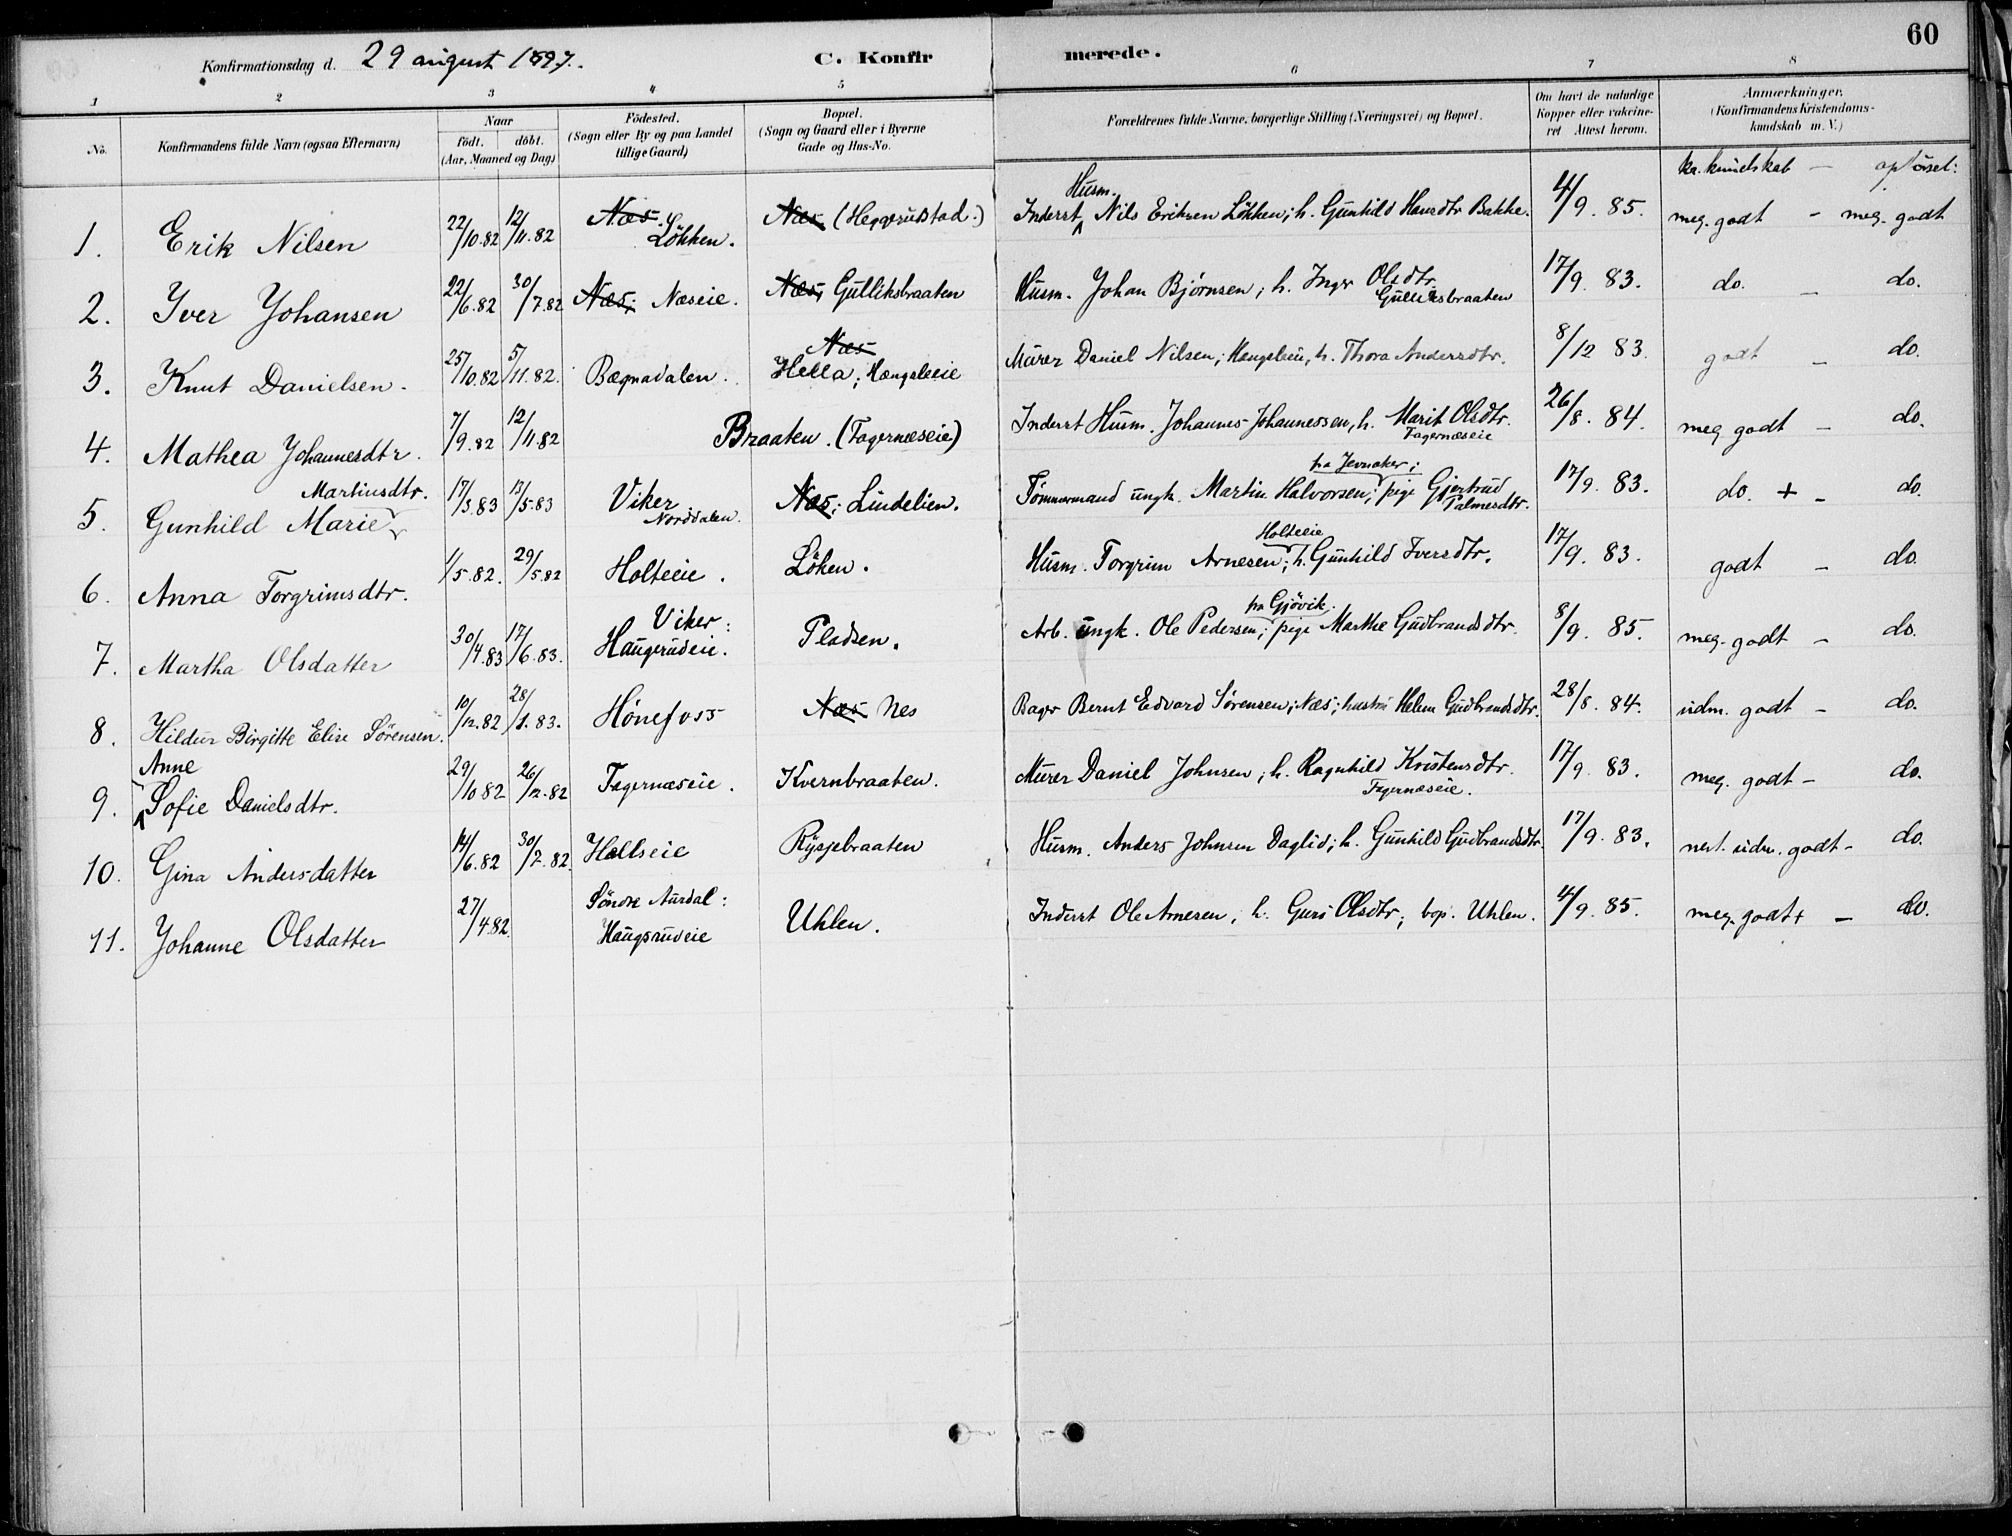 60
Konfirmationsdag d. 29 august 1897.
C. Konfirmerede.
1 2 3 4 5 6 7 8
No.
Konfirmandens fulde Navn (ogsaa Efternavn)
Naar
födt. döbt.
(Aar, Maaned og Dag)
Födested.
(Sogn eller By og paa Landet
tillige Gaard)
Bopæl.
(Sogn og Gaard eller i Byerne
Gade og Hus-No.
Forældrenes fulde Navne, borgerlige Stilling (Næringsvei) og Bopæl.
Om havt de naturlige
Kopper eller vakcine-
ret Attest herom.
Anmærkninger.
(Konfirmandens Kristendoms-
kundskab m. V.)
kr. kundskab — opförsel:
1. Erik Nilsen 22/10.82 12/11.82 Næs. Lökken. Næs (Heggerudstad.) Inderst Husm. Nils Eriksen Lökken; h. Gunhild Hansdtr Bakke. 4/9. 85. meg. godt - meg. godt
2. Iver Johansen 22/6.82 30/7.82 Næs; Næseie. Næs; Gulliksbraaten Husm. Johan Bjørnsen; h. Inger Olsdtr. Gulliksbraaten 17/9. 83. do. — do.
3. Knut Danielsen. 25/10.82 5/11.82. Bægnadalen. Næs Hella; Hængsleeie Murer Daniel Nilsen; Hængsleeie, h. Thora Andersdtr. 8/12 83. godt — do.
4. Mathea Johannesdtr. 7/9.82 12/11.82 Braaten. (Fagernæseie) Inderst Husm. Johannes Johannessen, h. Marit Olsdtr. Fagernæseie 26/8. 84. meg godt — do.
5. Gunhild Marie Martinsdtr. 17/3.83 13/5.83 Viker Norddalen. Næs; Lindelien. Tömmermand ungk. Martin Halvorsen, fra Jevnaker; pige Gjertrud Palmesdtr. 17/9. 83. do. + - do.
6. Anna Torgrimsdtr. 1/5.82. 29/5.82 Holteeie. Löken. Husm. Torgrim Arnesen, Holteeie; h. Gunhild Iversdtr. 17/9. 83. godt — do.
7. Martha Olsdatter 30/4.83 17/6.83. Viker: Haugerudeie. Pladsen. Arb. ungk. Ole Pedersen, fra Gjövik; pige Marthe Gudbrandsdtr. 8/9. 85. meg. godt — do.
8. Hildur Birgitte Elise Sörensen. 10/12.82 28/1.83. Hönefoss Næs Nes Bager Bernt Edvard Sørensen; Næs; hustru Helene Gudbrandsdtr. 28/8. 84. udm. godt — do.
9. Anne Sofie Danielsdtr. 29/10 82 26/12.82 Fagernæseie. Kvernbraaten. Murer Daniel Johnsen, h. Ragnhild Kristensdtr. Fagernæseie. 17/9. 83. meg. godt — do.
10. Gina Andersdatter 14/6.82 30/7.82. Hallseie Rysjebraaten Husm. Anders Johnsen Daglid; h. Gunhild Gudbrandsdtr. 17/9. 83. nest. udm. godt - do.
11. Johanne Olsdatter 27/4.82. Söndre Aurdal: Haugsrudeie Uhlen. Inderst Ole Arnesen, h. Guri Olsdtr, bop. Uhlen. 4/9. 85. meg. godt + — do.